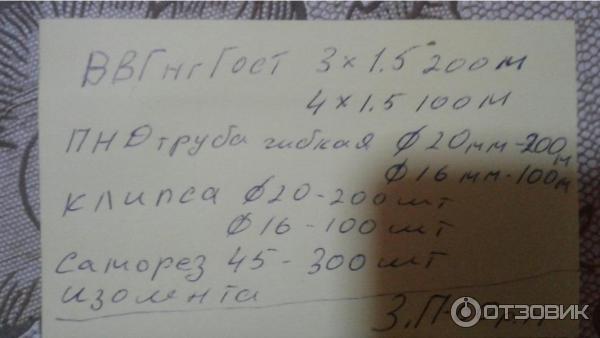 ВВГнгГост 3×1.5 200м
4×1.5 100м
ПНД труба гибкая ϕ20мм-200м
ϕ16мм-100м
клипса ϕ20-200шт
ϕ16-100шт
саморез 45-300шт
изолента
ОТЗОВИК